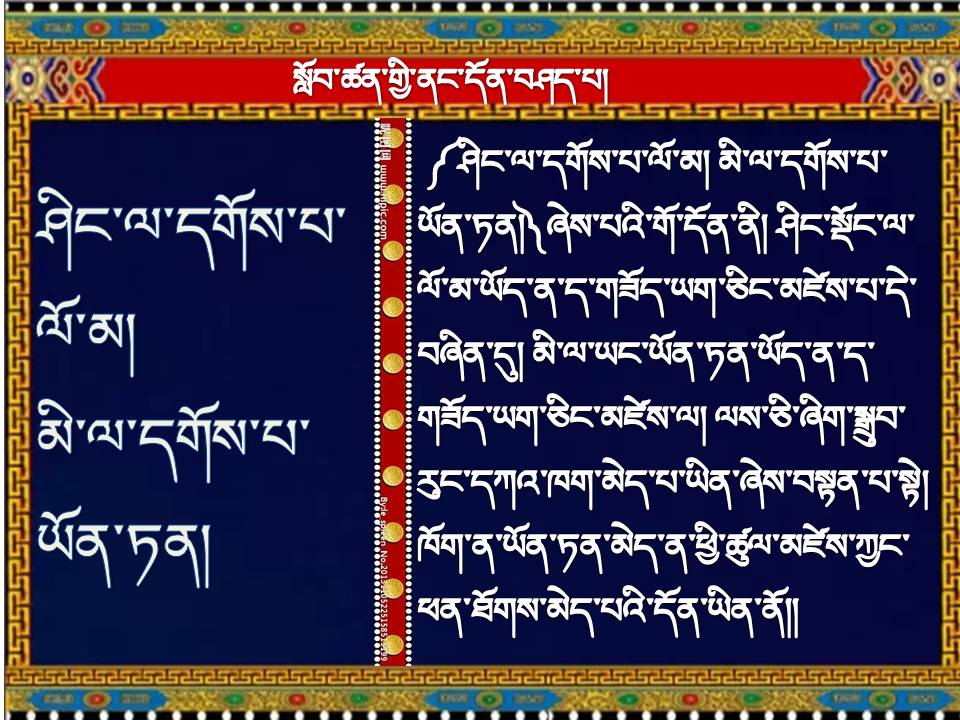 སློབ་ཚན་གྱི་ནང་དོན་བཤད་པ།
ཤིང་ལ་དགོས་པ་
ལོ་མ།
མི་ལ་དགོས་པ་
ཡོན་ཏན།
༼ཤིང་ལ་དགོས་པ་ལོ་མ། མི་ལ་དགོས་པ་
ཡོན་ཏན།༽ ཞེས་པའི་གོ་དོན་ནི། ཤིང་སྡོང་ལ་
ལོ་མ་ཡོད་ན་ད་གཟོད་ཡག་ཅིང་མཛེས་པ་དེ་
བཞིན་དུ། མི་ལ་ཡང་ཡོན་ཏན་ཡོད་ན་ད་
གཟོད་ཡག་ཅིང་མཛེས་ལ། ལས་ཅི་ཞིག་སྒྲུབ་
རུང་དཀའ་ཁག་མེད་པ་ཡིན་ཞེས་བསྟན་པ་སྟེ།
ཁོག་ན་ཡོན་ཏན་མེད་ན་ཕྱི་ཚུལ་མཛེས་ཀྱང་
ཕན་ཐོགས་མེད་པའི་དོན་ཡིན་ནོ།།